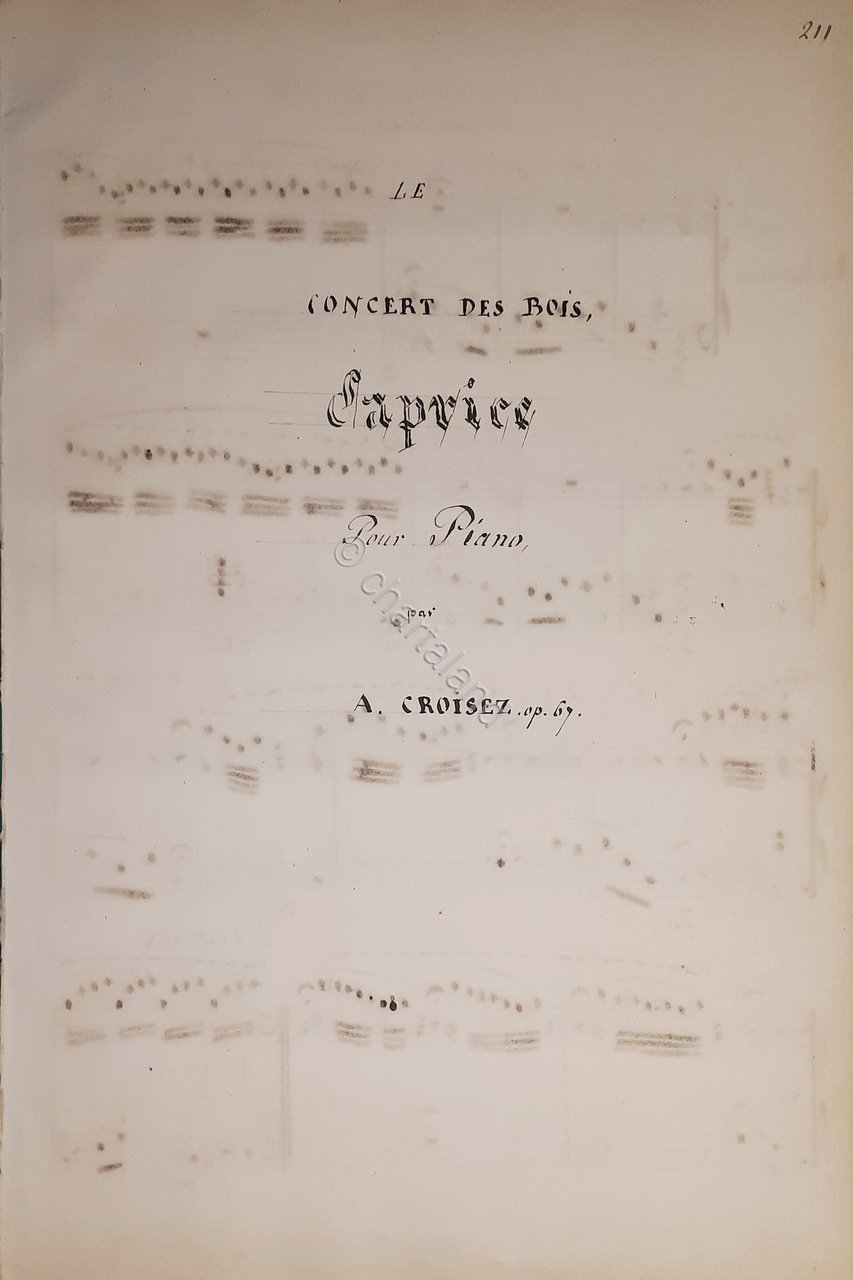 211
LE
CONCERT DES BOIS,
Caprice
Pour Piano,
par
A. CROISEZ. op. 67.
© chartaland